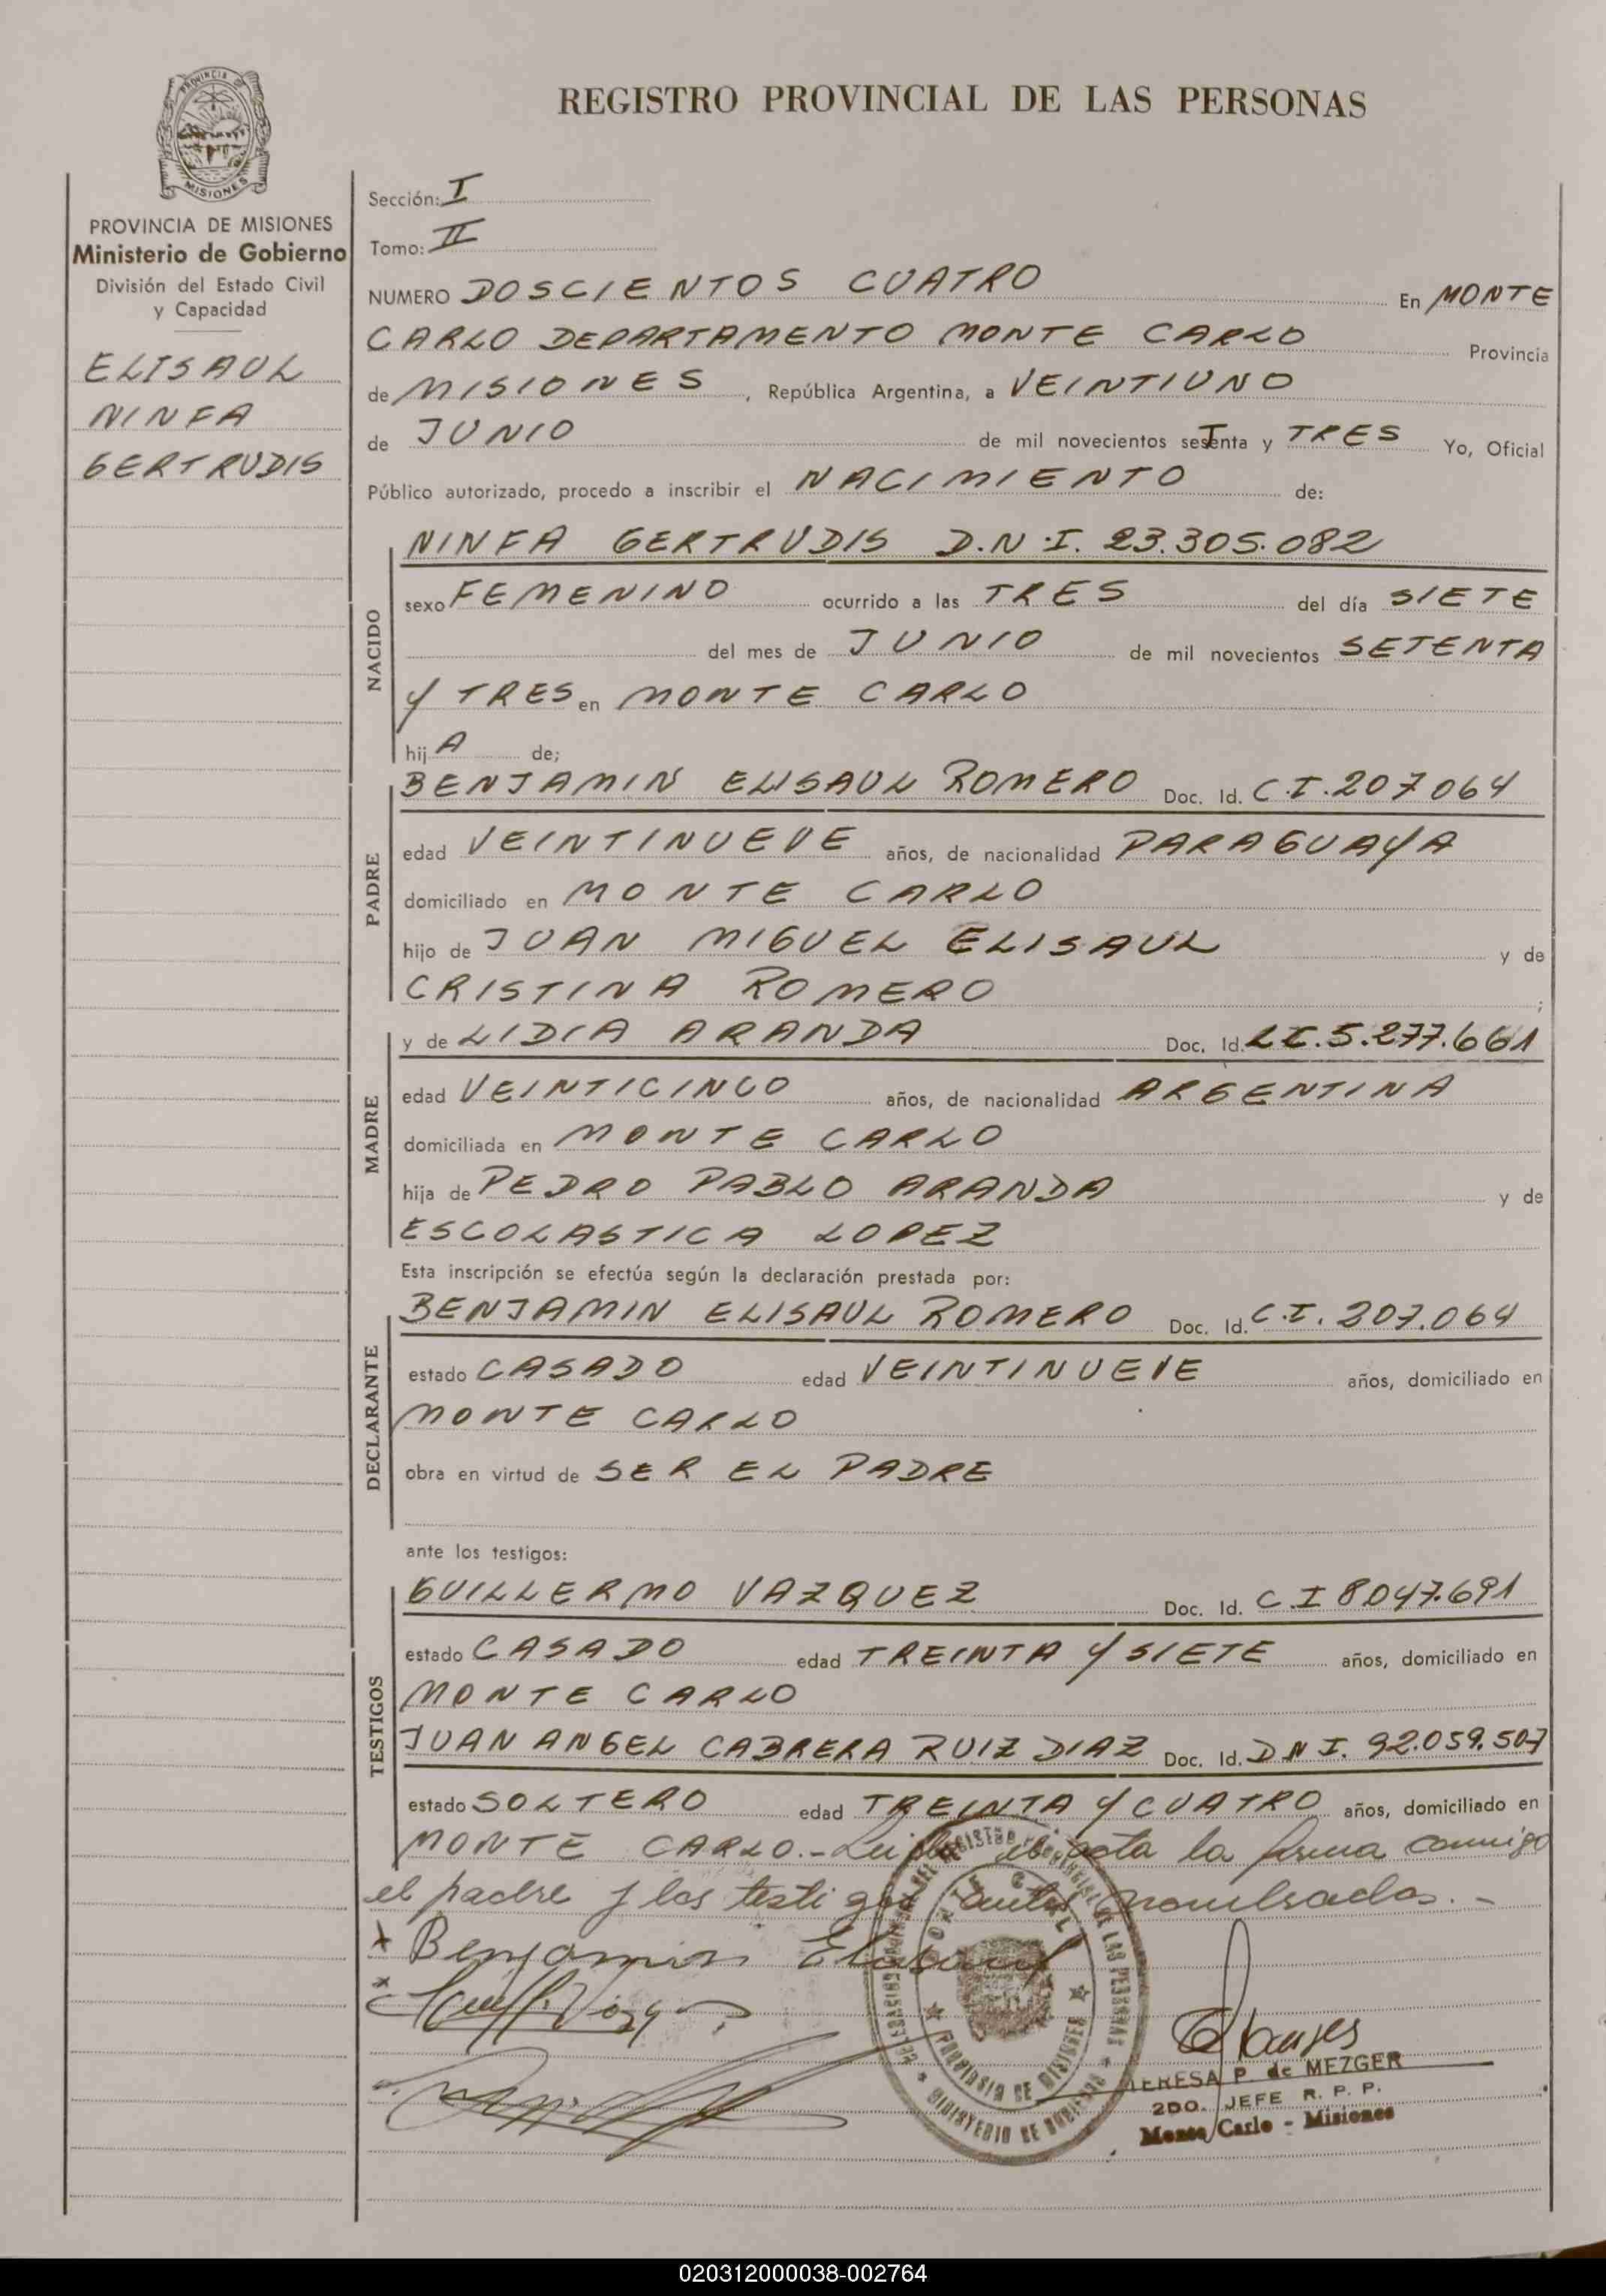 PROVINCIA DE
MISIONES
REGISTRO PROVINCIAL DE LAS PERSONAS
PROVINCIA DE MISIONES
Ministerio de Gobierno
División del Estado Civil
y Capacidad
ELISAUL
NINFA
GERTRUDIS
Sección: I
Tomo: II
NUMERO DOSCIENTOS CUATRO En MONTE
CARLO DEPARTAMENTO MONTE CARLO Provincia
de MISIONES, República Argentina, a VEINTIUNO
de JUNIO de mil novecientos seTenta y TRES Yo, Oficial
Público autorizado, procedo a inscribir el NACIMIENTO de:
NACIDO
NINFA GERTRUDIS D.N.I. 23.305.082
sexo FEMENINO ocurrido a las TRES del día SIETE
del mes de JUNIO de mil novecientos SETENTA
Y TRES en MONTE CARLO
hij A de;
PADRE
BENJAMIN ELISAUL ROMERO Doc. Id. C.I. 207064
edad VEINTINUEVE años, de nacionalidad PARAGUAYA
domiciliado en MONTE CARLO
hijo de JUAN MIGUEL ELISAUL y de
CRISTINA ROMERO ;
MADRE
y de LIDIA ARANDA Doc. Id. LC. 5.277.661
edad VEINTICINCO años, de nacionalidad ARGENTINA
domiciliada en MONTE CARLO
hija de PEDRO PABLO ARANDA y de
ESCOLASTICA LOPEZ
Esta inscripción se efectúa según la declaración prestada por:
DECLARANTE
BENJAMIN ELISAUL ROMERO Doc. Id. C.I. 207.064
estado CASADO edad VEINTINUEVE años, domiciliado en
MONTE CARLO
obra en virtud de SER EL PADRE
ante los testigos:
TESTIGOS
GUILLERMO VAZQUEZ Doc. Id. C.I 8047.691
estado CASADO edad TREINTA Y SIETE años, domiciliado en
MONTE CARLO
JUAN ANGEL CABRERA RUIZ DIAZ Doc. Id. DNI. 92.059.507
estado SOLTERO edad TREINTA Y CUATRO años, domiciliado en
MONTE CARLO.- Leida el acta la firma conmigo
el padre y los testigos antes nombrados.-
Benjamin Elisaul
TERESA P. de MEZGER
2DO. JEFE R. P. P.
Monte Carlo - Misiones
PROVINCIA DE MISIONES
MINISTERIO DE GOBIERNO
020312000038-002764